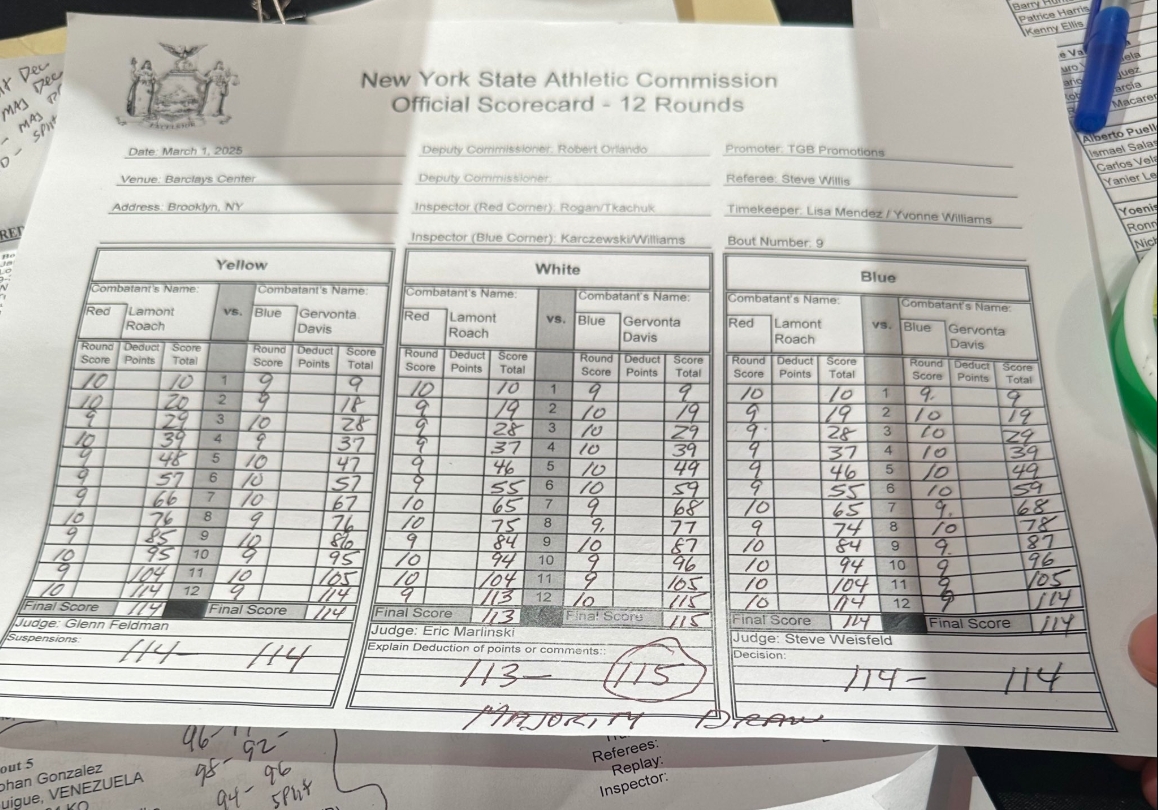 Barry
Patrice Harris
Kenny Ellis
New York State Athletic Commission
Official Scorecard - 12 Rounds
EXCELSIOR
Date: March 1, 2025
Deputy Commissioner: Robert Orlando
Promoter: TGB Promotions
Venue: Barclays Center
Deputy Commissioner:
Referee: Steve Willis
Address: Brooklyn, NY
Inspector (Red Corner): Rogan/Tkachuk
Timekeeper: Lisa Mendez / Yvonne Williams
Inspector (Blue Corner): Karczewski/Williams
Bout Number: 9
Yellow
Combatant's Name: vs. Combatant's Name:
Red Lamont Roach Blue Gervonta Davis
Round Score Deduct Points Score Total Round Score Deduct Points Score Total
10 10 1 9 9
10 20 2 9 18
9 29 3 10 28
10 39 4 9 37
9 48 5 10 47
9 57 6 10 57
9 66 7 10 67
10 76 8 9 76
9 85 9 10 86
10 95 10 9 95
9 104 11 10 105
10 114 12 9 114
Final Score 114 Final Score 114
Judge: Glenn Feldman
Suspensions:
114- 114
White
Combatant's Name: vs. Combatant's Name:
Red Lamont Roach Blue Gervonta Davis
Round Score Deduct Points Score Total Round Score Deduct Points Score Total
10 10 1 9 9
9 19 2 10 19
9 28 3 10 29
9 37 4 10 39
9 46 5 10 49
9 55 6 10 59
10 65 7 9 68
10 75 8 9. 77
9 84 9 10 87
10 94 10 9 96
10 104 11 9 105
9 113 12 10 115
Final Score 113 Final Score 115
Judge: Eric Marlinski
Explain Deduction of points or comments::
113- 115
Blue
Combatant's Name: vs. Combatant's Name:
Red Lamont Roach Blue Gervonta Davis
Round Score Deduct Points Score Total Round Score Deduct Points Score Total
10 10 1 9. 9
9 19 2 10 19
9 28 3 10 29
9 37 4 10 39
9 46 5 10 49
9 55 6 10 59
10 65 7 9. 68
9 74 8 10 78
10 84 9 9. 87
10 94 10 9 96
10 104 11 9 105
10 114 12 9 114
Final Score 114 Final Score 114
Judge: Steve Weisfeld
Decision:
114- 114
MAJORITY DRAW
Alberto Puell
Ismael Salas
Carlos Vela
Yanier Le
Yoenis
Ronn
Nich
out 5
ohan Gonzalez
uigue, VENEZUELA
KO
96-
92-
98- 96
94- SPLIT
Referees:
Replay:
Inspector: